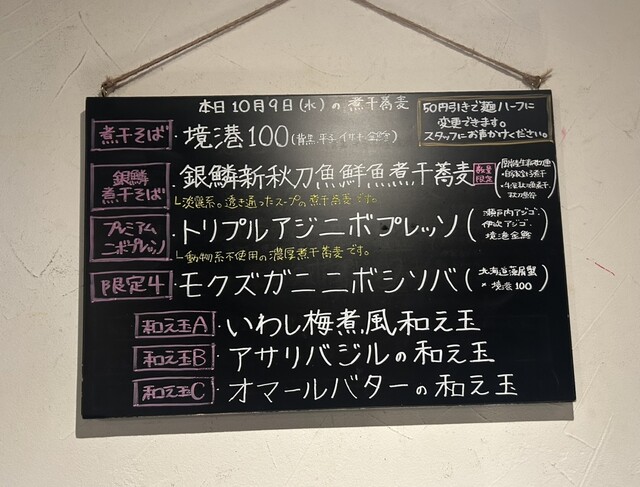 本日10月9日(水)の煮干蕎麦
50円引きで麺ハーフに
変更できます。
スタッフにお声かけください。
煮干そば・境港100
銀鱗
煮干そば
・銀鱗新秋刀魚鮮魚煮干蕎麦
数量
限定
└淡麗系。透き通ったスープの煮干蕎麦です。
プレミアム
ニボプレッソ
・トリプルアジニボプレッソ
瀬戸内アジゴ
伊吹アジゴ
境港金鯵
└動物系不使用の濃厚煮干蕎麦です。
限定4・モクズガニニボシソバ
北海道藻屑蟹
×境港100
和え玉A・いわし梅煮風和え玉
和え玉B・アサリバジルの和え玉
和え玉C・オマールバターの和え玉